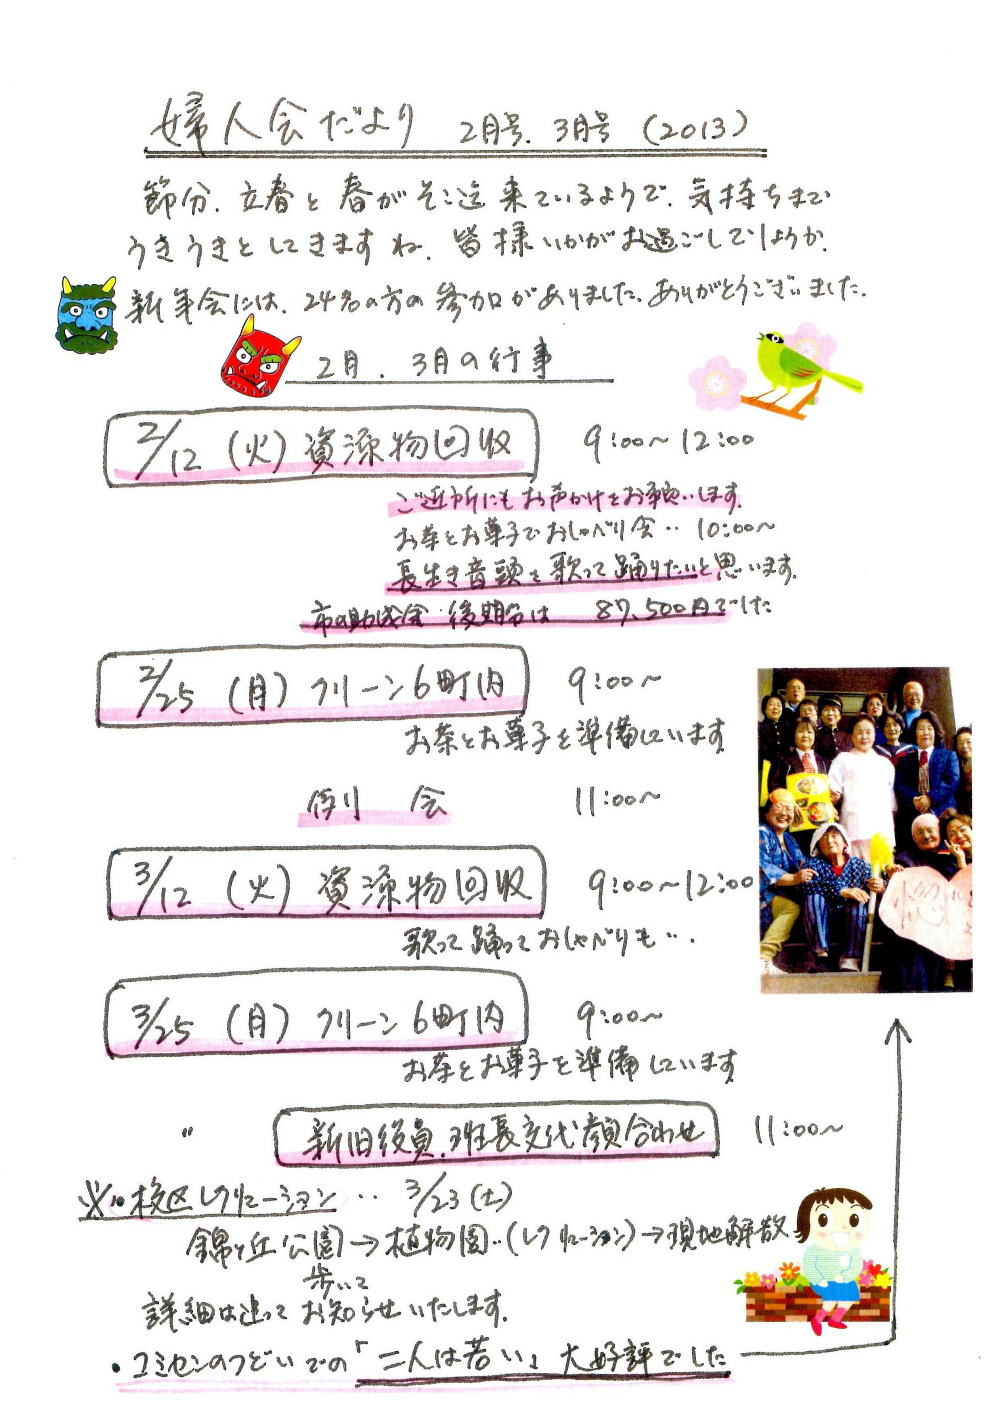 婦人会だより 2月号.3月号 (2013)
節分.立春と春がそこ迄来ているようで.気持ちまで
うきうきとしてきますね.皆様いかがお過ごしでしょうか.
新年会には.24名の方の参加がありました.ありがとうございました.
2月.3月の行事
2/12 (火) 資源物回収 9:00〜12:00
ご近所にもお声かけをお願いします.
お茶とお菓子でおしゃべり会‥ 10:00〜
長生き音頭を歌って踊りたいと思います.
市の助成金 後期分は 87,500円でした
2/25 (月) クリーン6町内 9:00〜
お茶とお菓子を準備しています
例会 11:00〜
3/12 (火) 資源物回収 9:00〜12:00
歌って踊っておしゃべりも‥.
3/25 (月) クリーン6町内 9:00〜
お茶とお菓子を準備しています
〃 新旧役員.班長交代顔合わせ 11:00〜
※校区レクリエーション‥ 3/23 (土)
錦ヶ丘公園→植物園‥(レクリエーション)→現地解散
歩いて
詳細は追ってお知らせいたします.
・コミセンのつどいでの「二人は若い」大好評でした